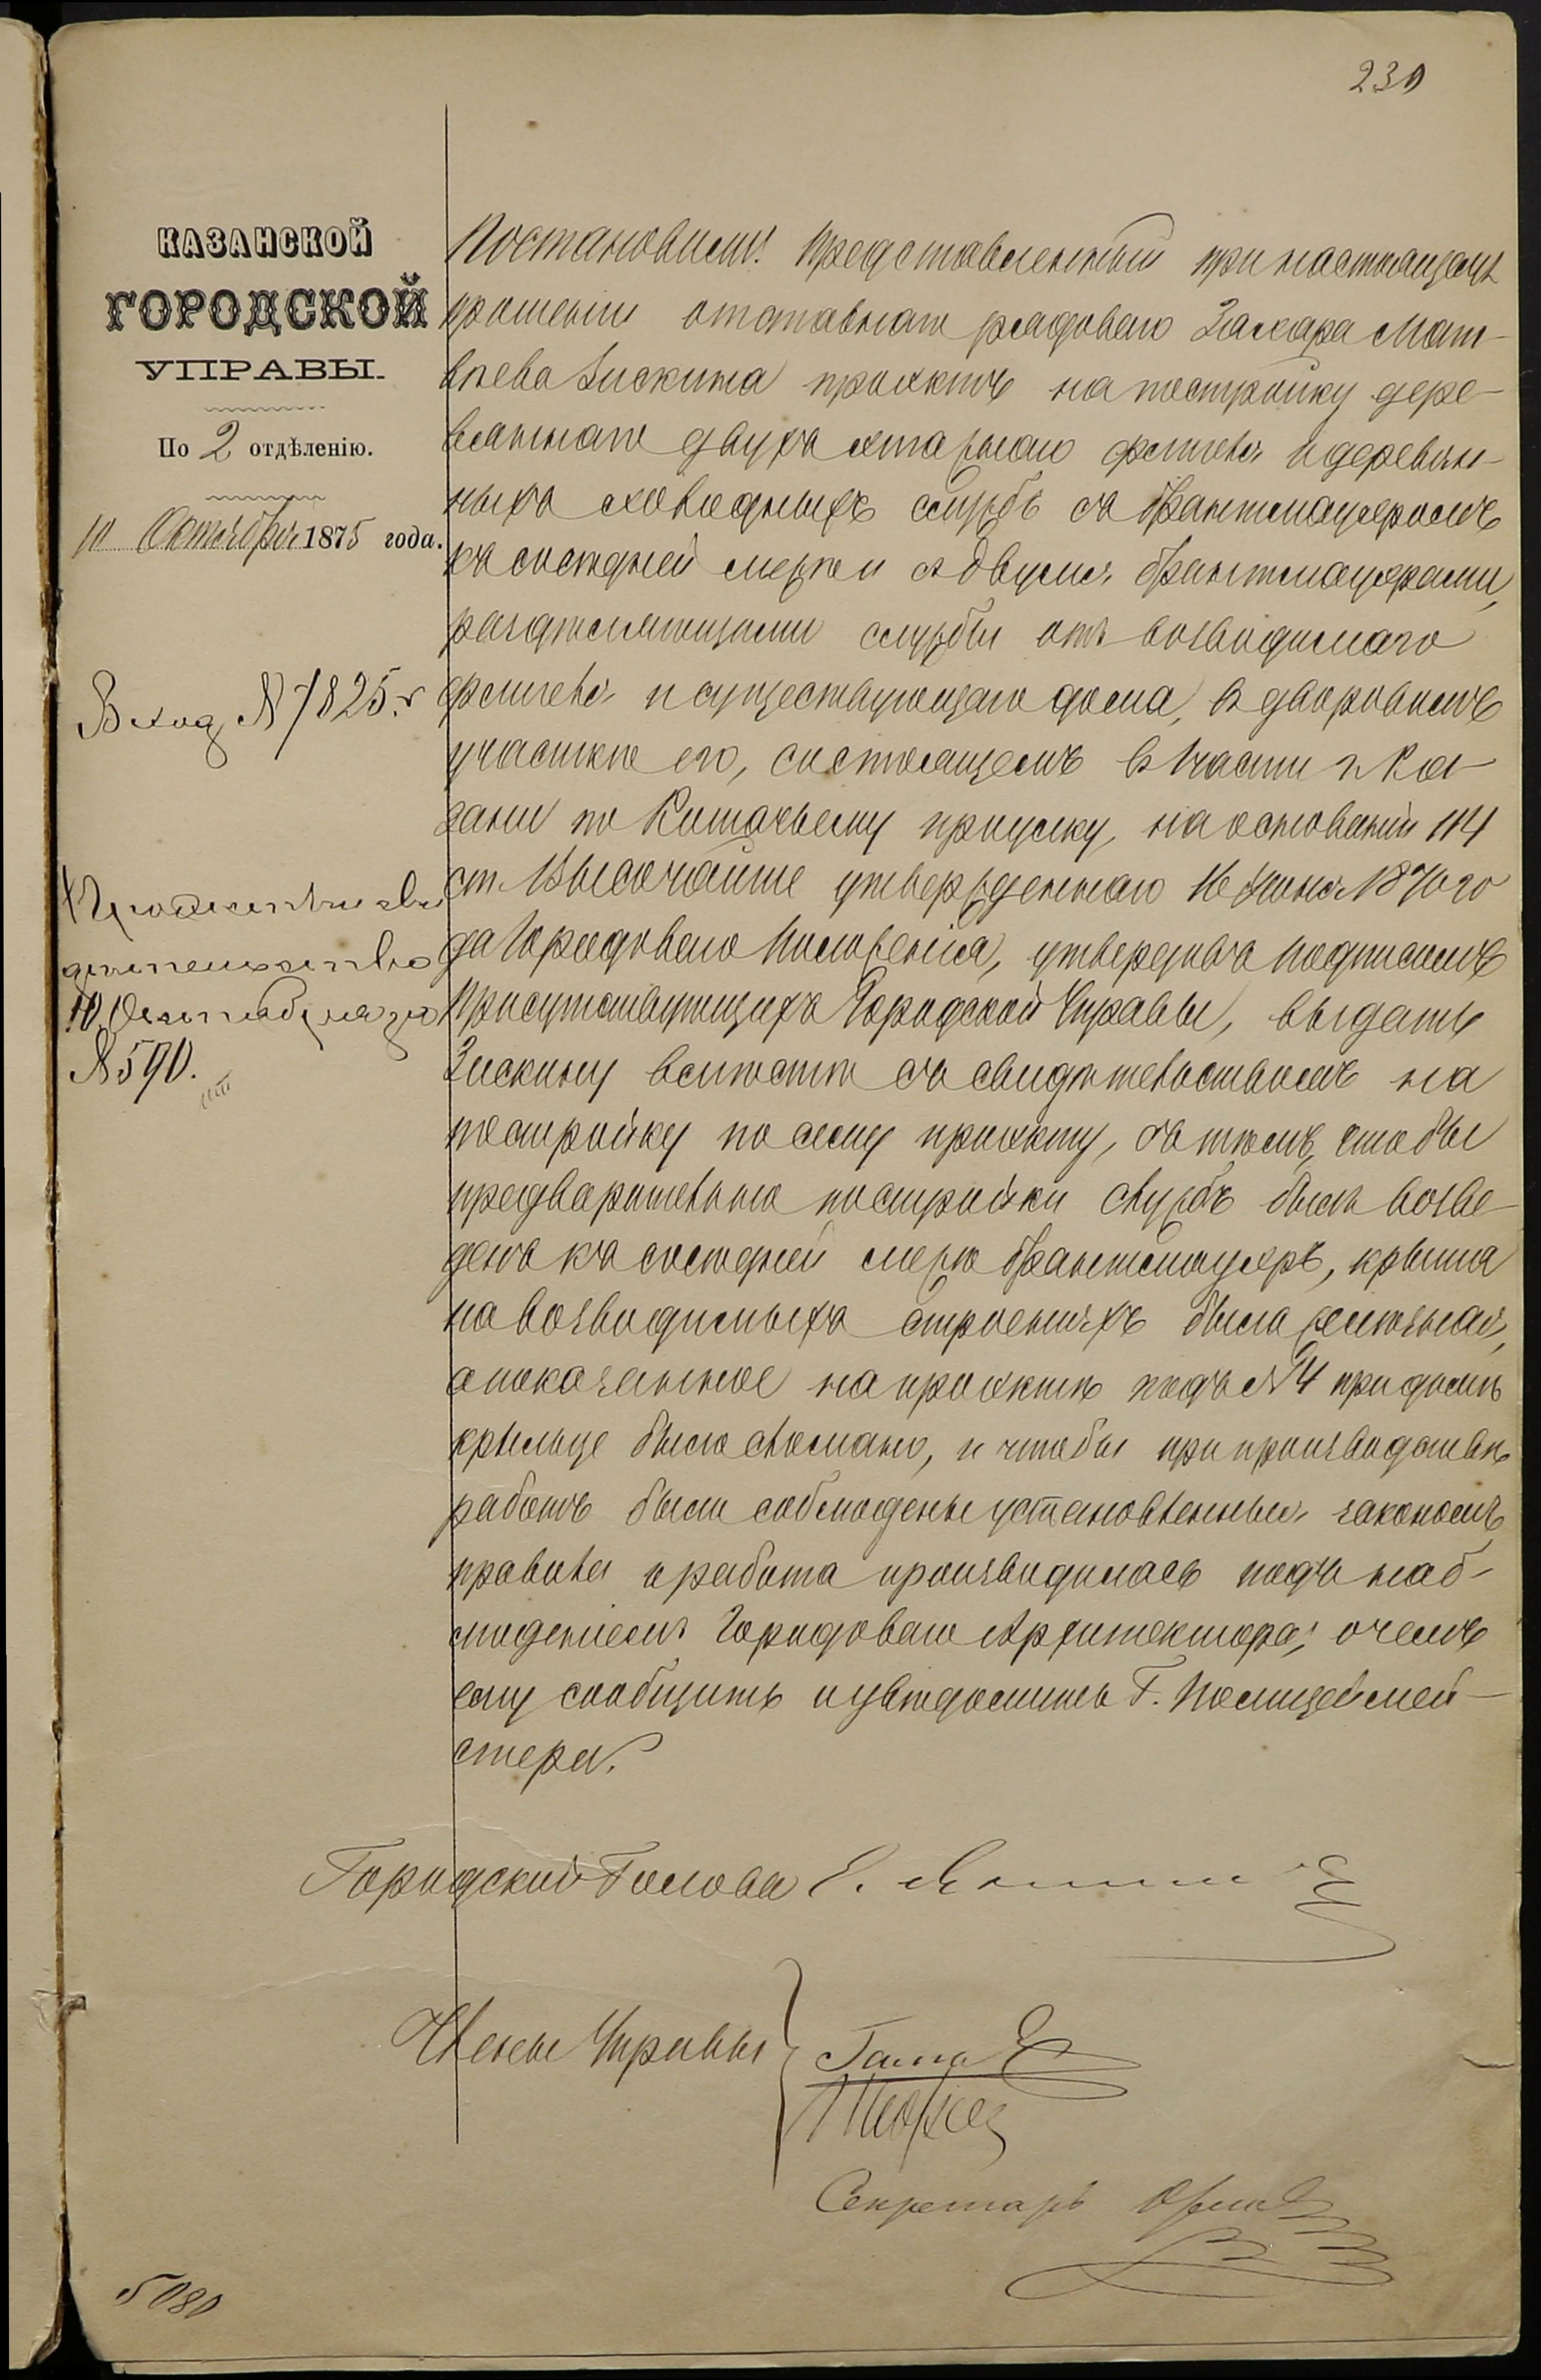 230
КАЗАНСКОЙ
ГОРОДСКОЙ
УПРАВЫ.
По 2 отдѣленію.
10 Октября 1875 года.
Вход № 7825.
10 Октября за
№ 590.
Постановили: Представленный при настоящемъ
прошеніи отставнаго рядоваго Захара Мат-
вѣева Зискина проэктъ на постройку дере-
вяннаго двухъ этажнаго флигеля и деревян-
ныхъ холодныхъ службъ съ брантмауеромъ
къ сосѣдней межѣ и двумя брантмауерами,
раздѣляющими службы отъ возводимаго
флигеля и существующаго дома, въ дворовомъ
участкѣ его, состоящемъ въ части г. Ка-
зани по переулку, на основаніи 114
ст. Высочайше утвержденнаго 16 Іюня 1870 го
да Городоваго Положенія, утвердивъ подписомъ
Присутствующихъ Городской Управы, выдать
Зискину вмѣстѣ съ свидѣтельствомъ на
постройку по сему проэкту, съ тѣмъ, чтобы
предварительно постройки службъ былъ возве-
денъ къ сосѣдней межѣ брантмауеръ, крыша
на возводимыхъ строеніяхъ была желѣзная,
а показанное на проэктѣ подъ № 4 при домѣ
крыльце было сломано, и чтобы при производствѣ
работъ были соблюдены установленныя закономъ
правила и работа производилась подъ наб-
люденіемъ Городоваго Архитектора; о чемъ
ему сообщить и увѣдомить Г. Полицеймей-
стера.
Городской Голова
Члены Управы
Секретарь
5080